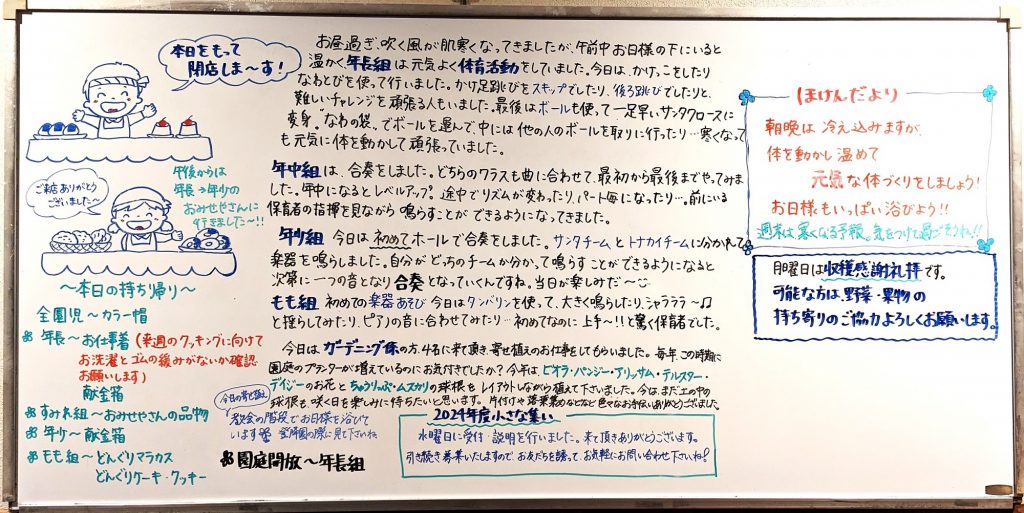 本日をもって
閉店しま〜す!
ご来店ありがとう
ございました〜
午後からは
年長→年少の
おみせやさんに
行きました〜!!
〜本日の持ち帰り〜
全園児〜カラー帽
年長〜お仕事着(来週のクッキングに向けて
お洗濯とゴムの緩みがないか確認
お願いします)
献金箱
すみれ組〜おみせやさんの品物
年少〜献金箱
もも組〜どんぐりマラカス
どんぐりケーキ・クッキー
お昼過ぎ、吹く風が肌寒くなってきましたが、午前中お日様の下にいると
温かく年長組は元気よく体育活動をしていました。今日は、かけっこをしたり
なわとびを使って行いました。かけ足跳びをスキップでしたり、後ろ跳びでしたりと、
難しいチャレンジを頑張る人もいました。最後はボールも使って一足早いサンタクロースに
変身。なわの袋。でボールを運んで、中には他の人のボールを取りに行ったり…寒くなって
も元気に体を動かして頑張っていました。
年中組は、合奏をしました。どちらのクラスも曲に合わせて、最初から最後までやってみま
した。年中になるとレベルアップ。途中でリズムが変わったり、パート毎になったり…。前にいる
保育者の指揮を見ながら鳴らすことができるようになってきました。
年少組 今日は初めてホールで合奏をしました。サンタチームとトナカイチームに分かれて
楽器を鳴らしました。自分がどっちのチームか分かって鳴らすことができるようになると
次第に一つの音となり合奏となっていくんですね。当日が楽しみだ〜
もも組 初めての楽器あそび 今日はタンバリンを使って、大きく鳴らしたり、シャラララ〜♫
と揺らしてみたり、ピアノの音に合わせてみたり…初めてなのに上手〜!!と驚く保育者でした。
今日はガーデニング係の方、4名に来て頂き、寄せ植えのお仕事をしてもらいました。毎年、この時期に
園庭のプランターが増えているのにお気付きでしたか?今年は、ビオラ・パンジー・アリッサム・テルスター・
デイジーのお花とちゅうりっぷ・ムスカリの球根をレイアウトしながら植えて下さいました。今は、まだ土の中の
球根も咲く日を楽しみに待ちたいと思います。片付けや落葉集めなどなど色々なお手伝いありがとうございました
今日の寄せ植え
教会の階段でお日様を浴びて
います 登降園の際に見て下さいね
園庭開放〜年長組
2024年度小さな集い
水曜日に受付・説明を行いました。来て頂きありがとうございます。
引き続き募集いたしますので、お友だちを誘って、お気軽にお問い合わせ下さいね!
ほけんだより
朝晩は冷え込みますが、
体を動かし温めて
元気な体づくりをしましょう!
お日様もいっぱい浴びよう!!
週末は寒くなる予報。気をつけて過ごそうね!!
月曜日は収穫感謝礼拝です。
可能な方は、野菜・果物の
持ち寄りのご協力よろしくお願いします。